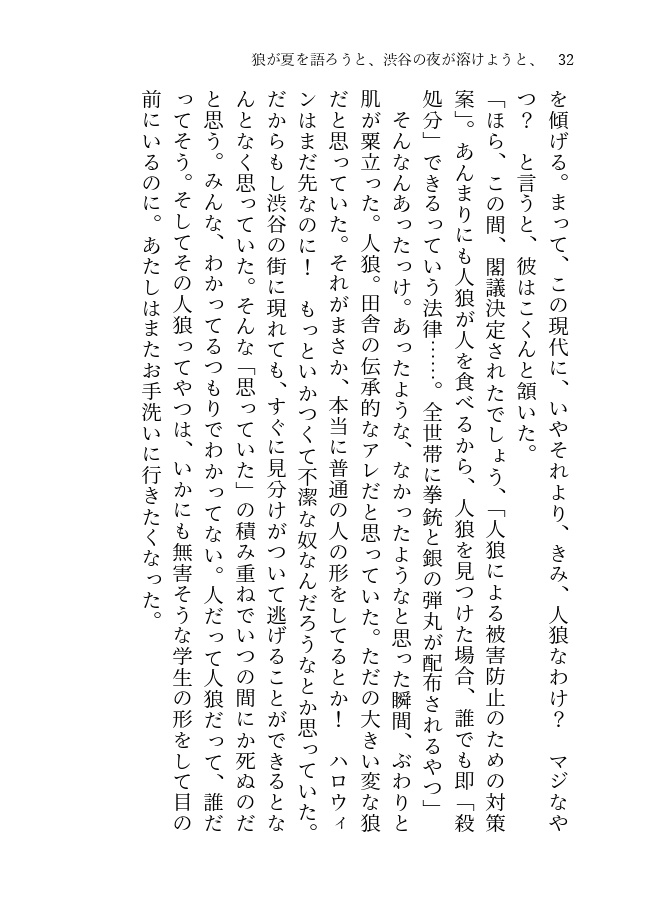 狼が夏を語ろうと、渋谷の夜が溶けようと、 32
を傾げる。まって、この現代に、いやそれより、きみ、人狼なわけ？　マジなや
つ？　と言うと、彼はこくんと頷いた。
「ほら、この間、閣議決定されたでしょう、「人狼による被害防止のための対策
案」。あんまりにも人狼が人を食べるから、人狼を見つけた場合、誰でも即「殺
処分」できるっていう法律……。全世帯に拳銃と銀の弾丸が配布されるやつ」
　そんなんあったっけ。あったような、なかったようなと思った瞬間、ぶわりと
肌が粟立った。人狼。田舎の伝承的なアレだと思っていた。ただの大きい変な狼
だと思っていた。それがまさか、本当に普通の人の形をしてるとか！　ハロウィ
ンはまだ先なのに！　もっといかつくて不潔な奴なんだろうなとか思っていた。
だからもし渋谷の街に現れても、すぐに見分けがついて逃げることができるとな
んとなく思っていた。そんな「思っていた」の積み重ねでいつの間にか死ぬのだ
と思う。みんな、わかってるつもりでわかってない。人だって人狼だって、誰だ
ってそう。そしてその人狼ってやつは、いかにも無害そうな学生の形をして目の
前にいるのに。あたしはまたお手洗いに行きたくなった。